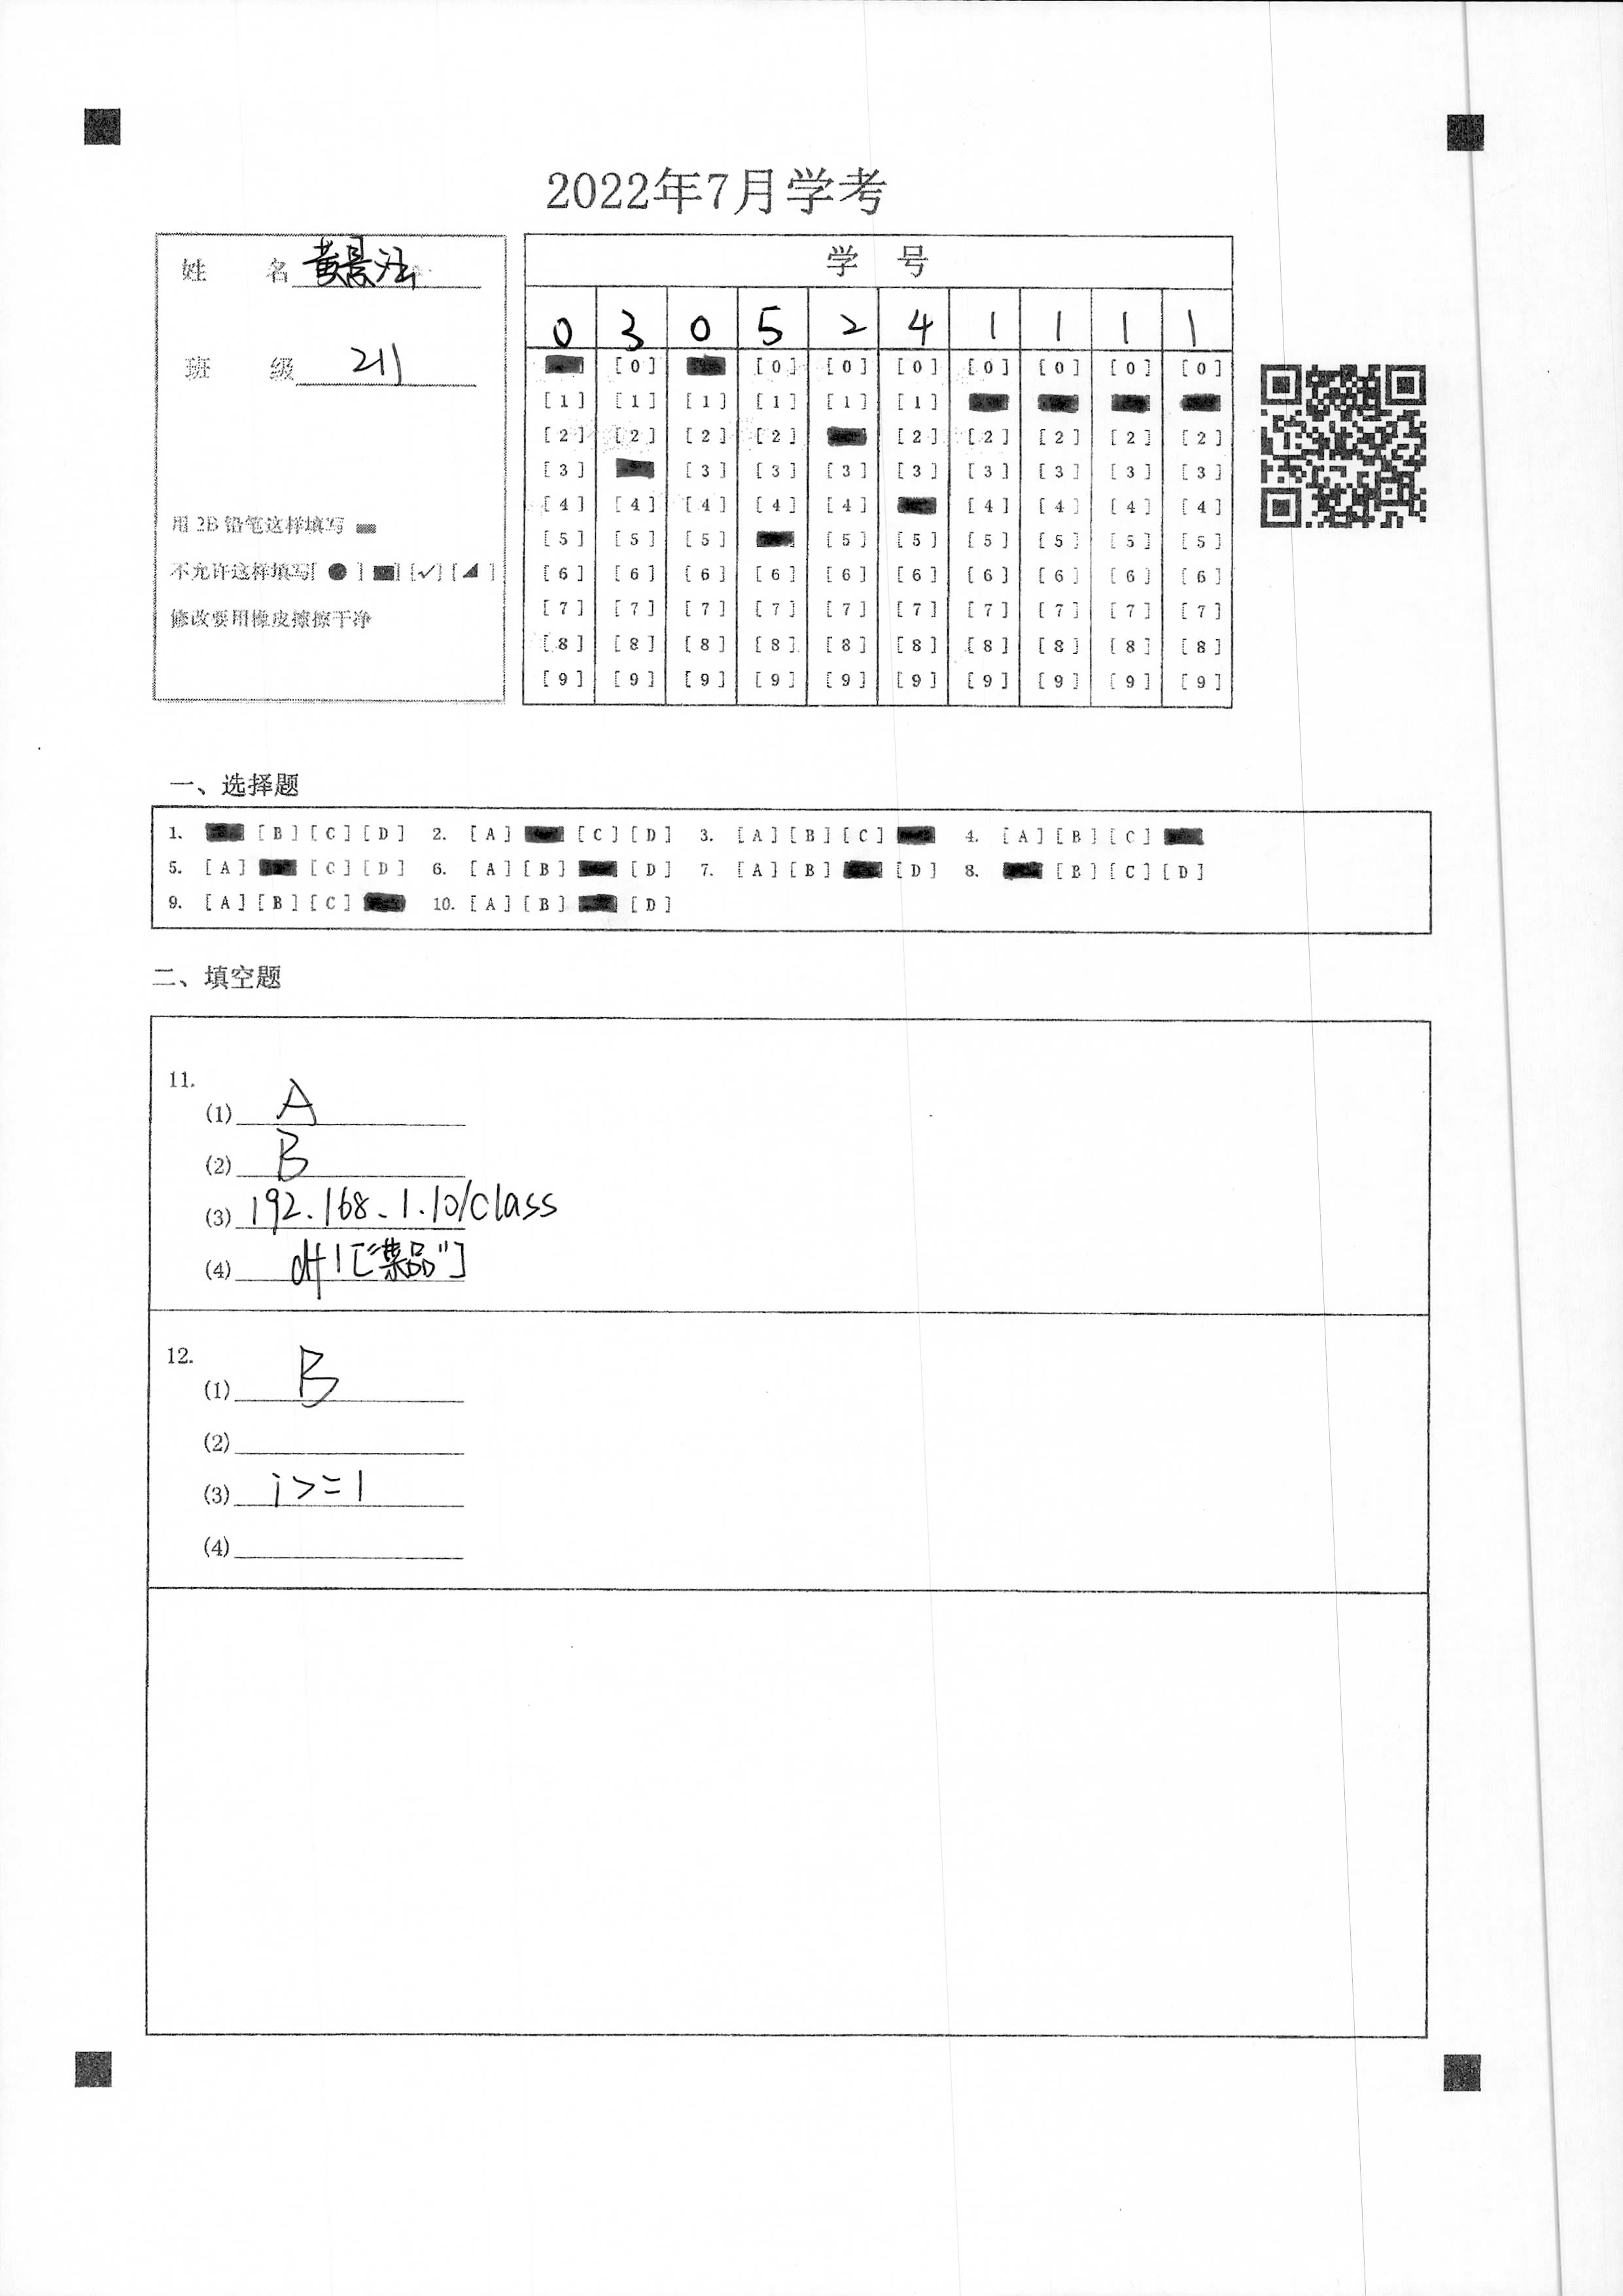 2022年7月学考
姓 名 黄景法
班 级 211
用 2B 铅笔这样填写
不允许这样填写[ ● ] [■] [✓] [◢ ]
修改要用橡皮擦擦干净
学 号
0 3 0 5 2 4 1 1 1 1
[0] [0] [0] [0] [0] [0] [0] [0]
[1] [1] [1] [1] [1] [1]
[2] [2] [2] [2] [2] [2] [2] [2] [2]
[3] [3] [3] [3] [3] [3] [3] [3] [3]
[4] [4] [4] [4] [4] [4] [4] [4] [4]
[5] [5] [5] [5] [5] [5] [5] [5] [5]
[6] [6] [6] [6] [6] [6] [6] [6] [6] [6]
[7] [7] [7] [7] [7] [7] [7] [7] [7] [7]
[8] [8] [8] [8] [8] [8] [8] [8] [8] [8]
[9] [9] [9] [9] [9] [9] [9] [9] [9] [9]
一、选择题
1. [B] [C] [D] 2. [A] [C] [D] 3. [A] [B] [C] 4. [A] [B] [C]
5. [A] [C] [D] 6. [A] [B] [D] 7. [A] [B] [D] 8. [B] [C] [D]
9. [A] [B] [C] 10. [A] [B] [D]
二、填空题
11.
(1) A
(2) B
(3) 192.168.1.10/class
(4) df1["菜品"]
12.
(1) B
(2)
(3) i>=1
(4)